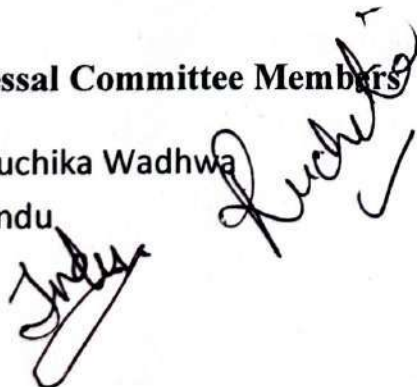 essal Committee Members
uchika Wadhwa
ndu
Ruchika
Indu